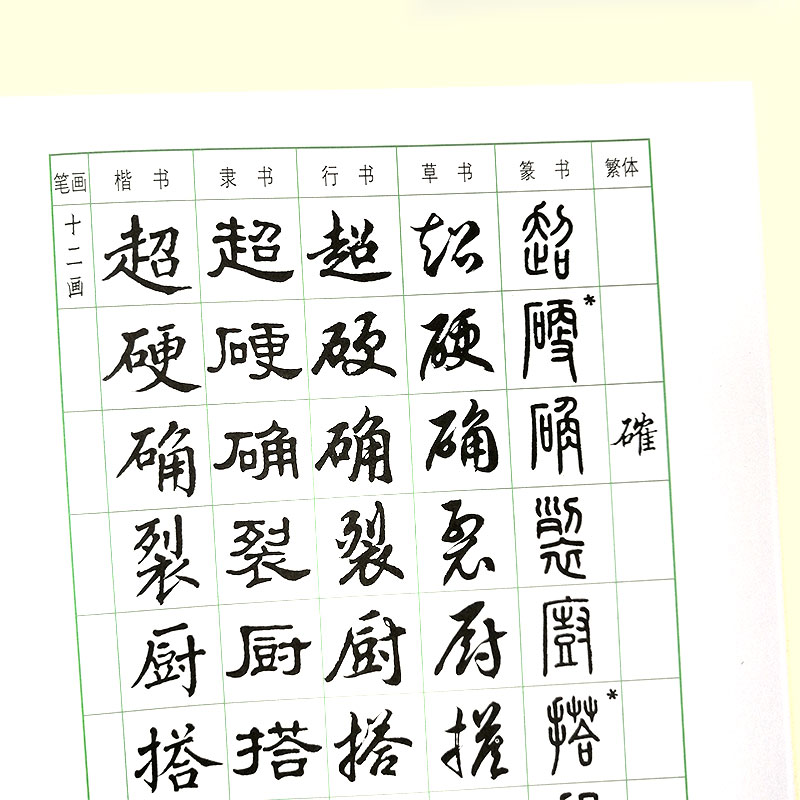 笔画 楷书 隶书 行书 草书 篆书 繁体
十二画 超 超 超 超 超
硬 硬 硬 硬 硬*
确 确 确 确 确 確
裂 裂 裂 裂 裂
厨 厨 厨 厨 廚
搭 搭 搭 搭 搭*